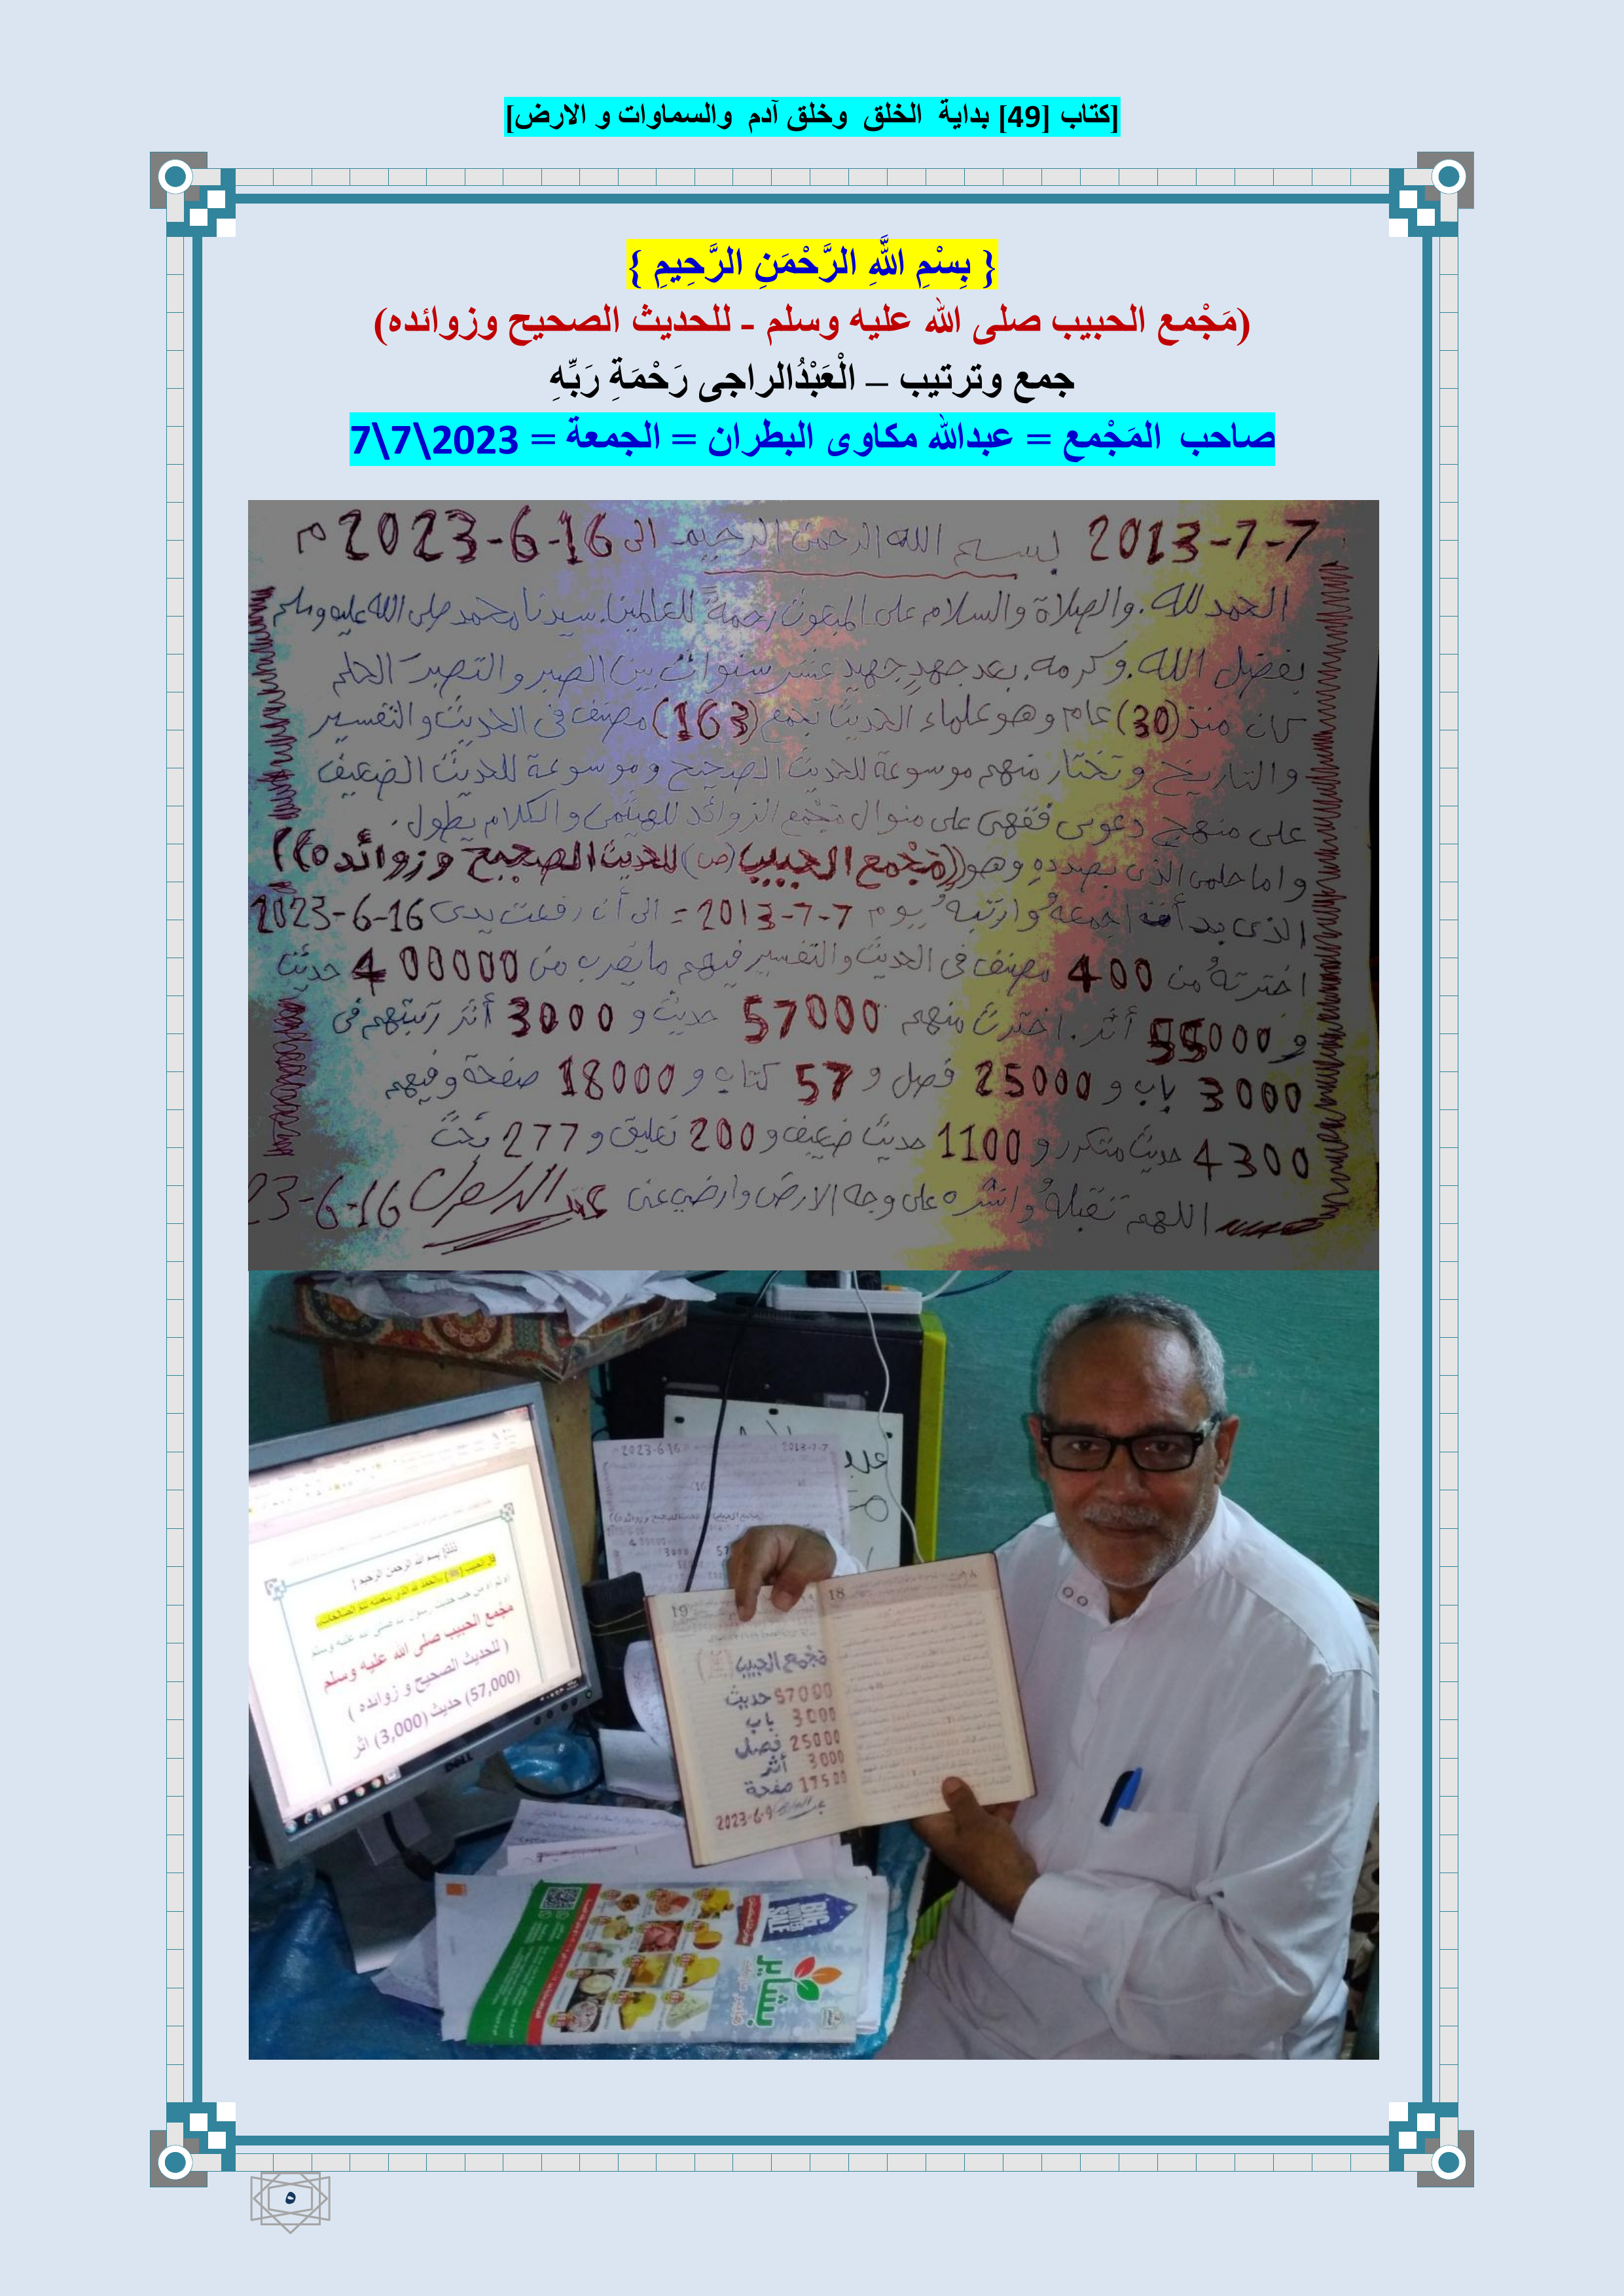 [كتاب [49] بداية الخلق وخلق آدم والسماوات و الارض]
{ بِسْمِ اللَّهِ الرَّحْمَنِ الرَّحِيمِ }
(مَجْمع الحبيب صلى الله عليه وسلم - للحديث الصحيح وزوائده)
جمع وترتيب – الْعَبْدُالراجى رَحْمَةِ رَبِّهِ
صاحب المَجْمع = عبدالله مكاوى البطران = الجمعة = 2023\7\7
7-7-2013 بسم الله الرحمن الرحيم الى 16-6-2023 م
الحمد لله. والصلاة والسلام على المبعوث رحمةً للعالمين. سيدنا محمد صلى الله عليه وسلم
بفضل الله. وكرمه. بعد جهدٍ جهيد عشر سنوات بين الصبر والتصبر الحلم
كان منذ (30) عام وهو علماء الحديث تجمع (163) مصنف فى الحديث والتفسير
والتاريخ وتختار منهم موسوعة للحديث الصحيح وموسوعة للحديث الضعيف
على منهج دعوى فقهى على منوال مَجْمع الزوائد للهيثمى والكلام يطول.
واما حلمى الذى بصددهِ وهو ((مَجْمع الحبيب (ص) للحديث الصحيح وزوائده))
الذى بدأت اجمعهُ وارتبهُ يوم 7-7-2013 = الى أن رفعت يدى 16-6-2023
اخترتهُ من 400 مصنف فى الحديث والتفسير فيهم ما يقرب من 400000 حديث
و 55000 أثر. اخترت منهم 57000 حديث و 3000 أثر رتبتهم فى
3000 باب و 25000 فصل و 57 كتاب و 18000 صفحة وفيهم
4300 حديث متكرر و 1100 حديث ضعيف و 200 تعليق و 277 بحث
اللهم تقبلهُ وانشره على وجه الارض وارضى عنى 23-6-16
2023-6-16 2013-7-7
{ بسم الله الرحمن الرحيم }
مجمع الحبيب صلى الله عليه وسلم
( للحديث الصحيح و زوائده )
(57,000) حديث (3,000) اثر
DELL
18
19
مَجْمع الحبيب
57000 حديث
3000 باب
25000 فصل
3000 أثر
17500 صفحة
2023-6-9
BIG
SALE
بشاير
٥